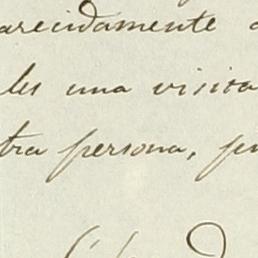 arecidamente
les una visita
tra persona, pu